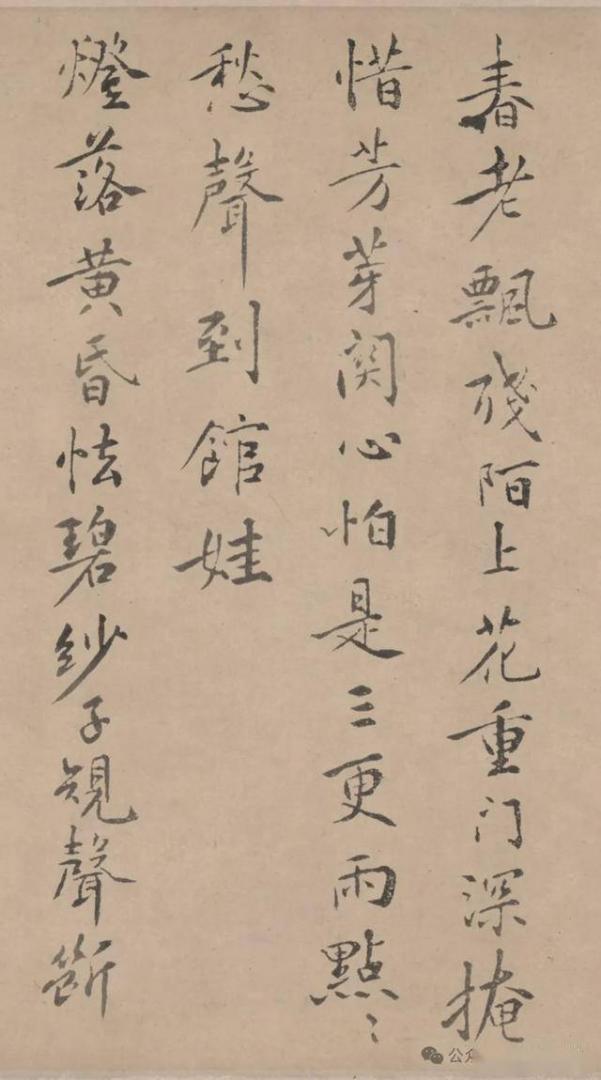 春老飄殘陌上花重门深掩
惜芳芽関心怕是三更雨點〻
愁聲到館娃
燈落黄昏怯碧紗子規聲斷
公众